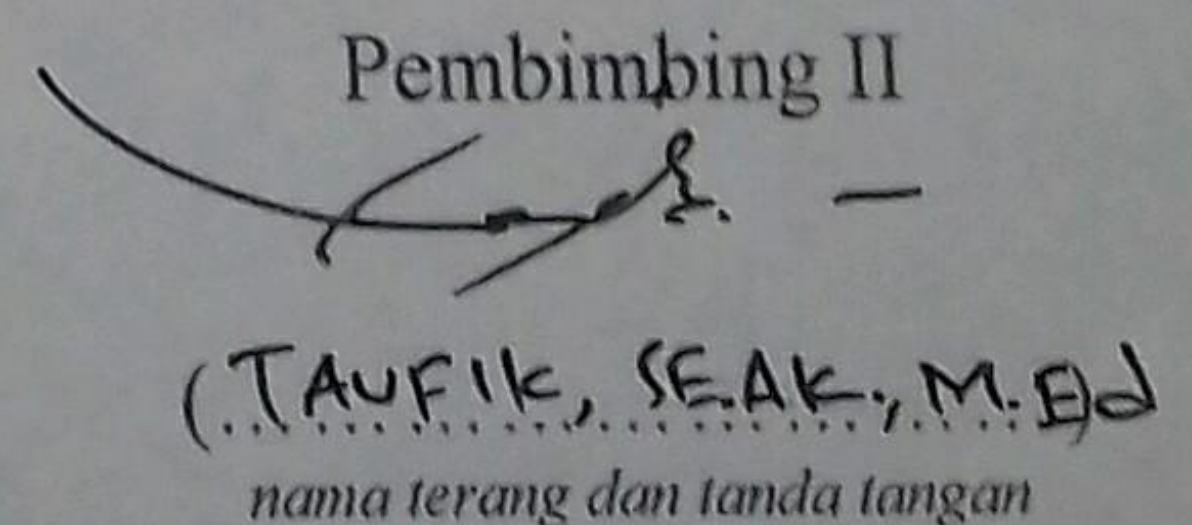 Pembimbing II
(TAUFIK, SE.AK., M.Ed)
nama terang dan tanda tangan